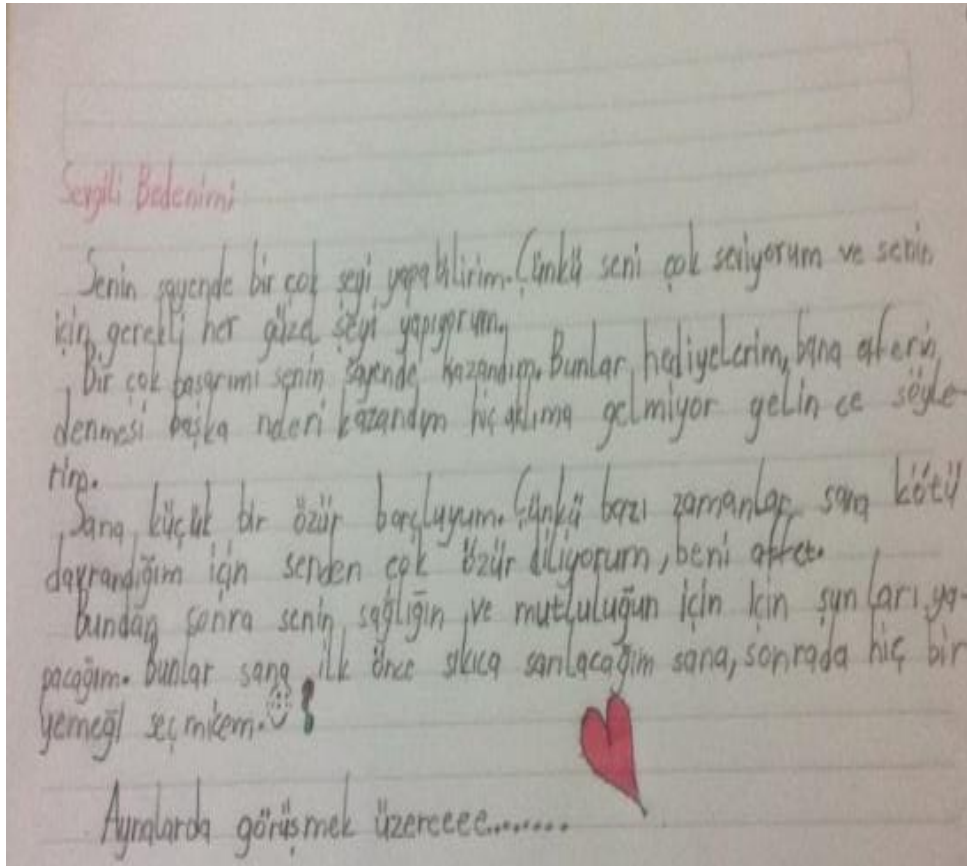 Sevgili Bedenimi
Senin sayende bir çok şeyi yapabilirim. Çünkü seni çok seviyorum ve senin
için gerekli her güzel şeyi yapıyorum.
Bir çok başarımı senin sayende kazandım. Bunlar, hediyelerim, bana aferin
denmesi başka nderi kazandım hiç aklıma gelmiyor gelin ce söyle-
rim.
Sana küçük bir özür borçluyum. Çünkü bazı zamanlar sana kötü
davrandığım için senden çok özür diliyorum, beni affet.
bundan sonra senin sağlığın ve mutluluğun için için şunları ya-
pacağım. Bunlar sana ilk önce sıkıca sarılacağım sana, sonrada hiç bir
yemeği seçmicem.
Aynalarda görüşmek üzereeee........